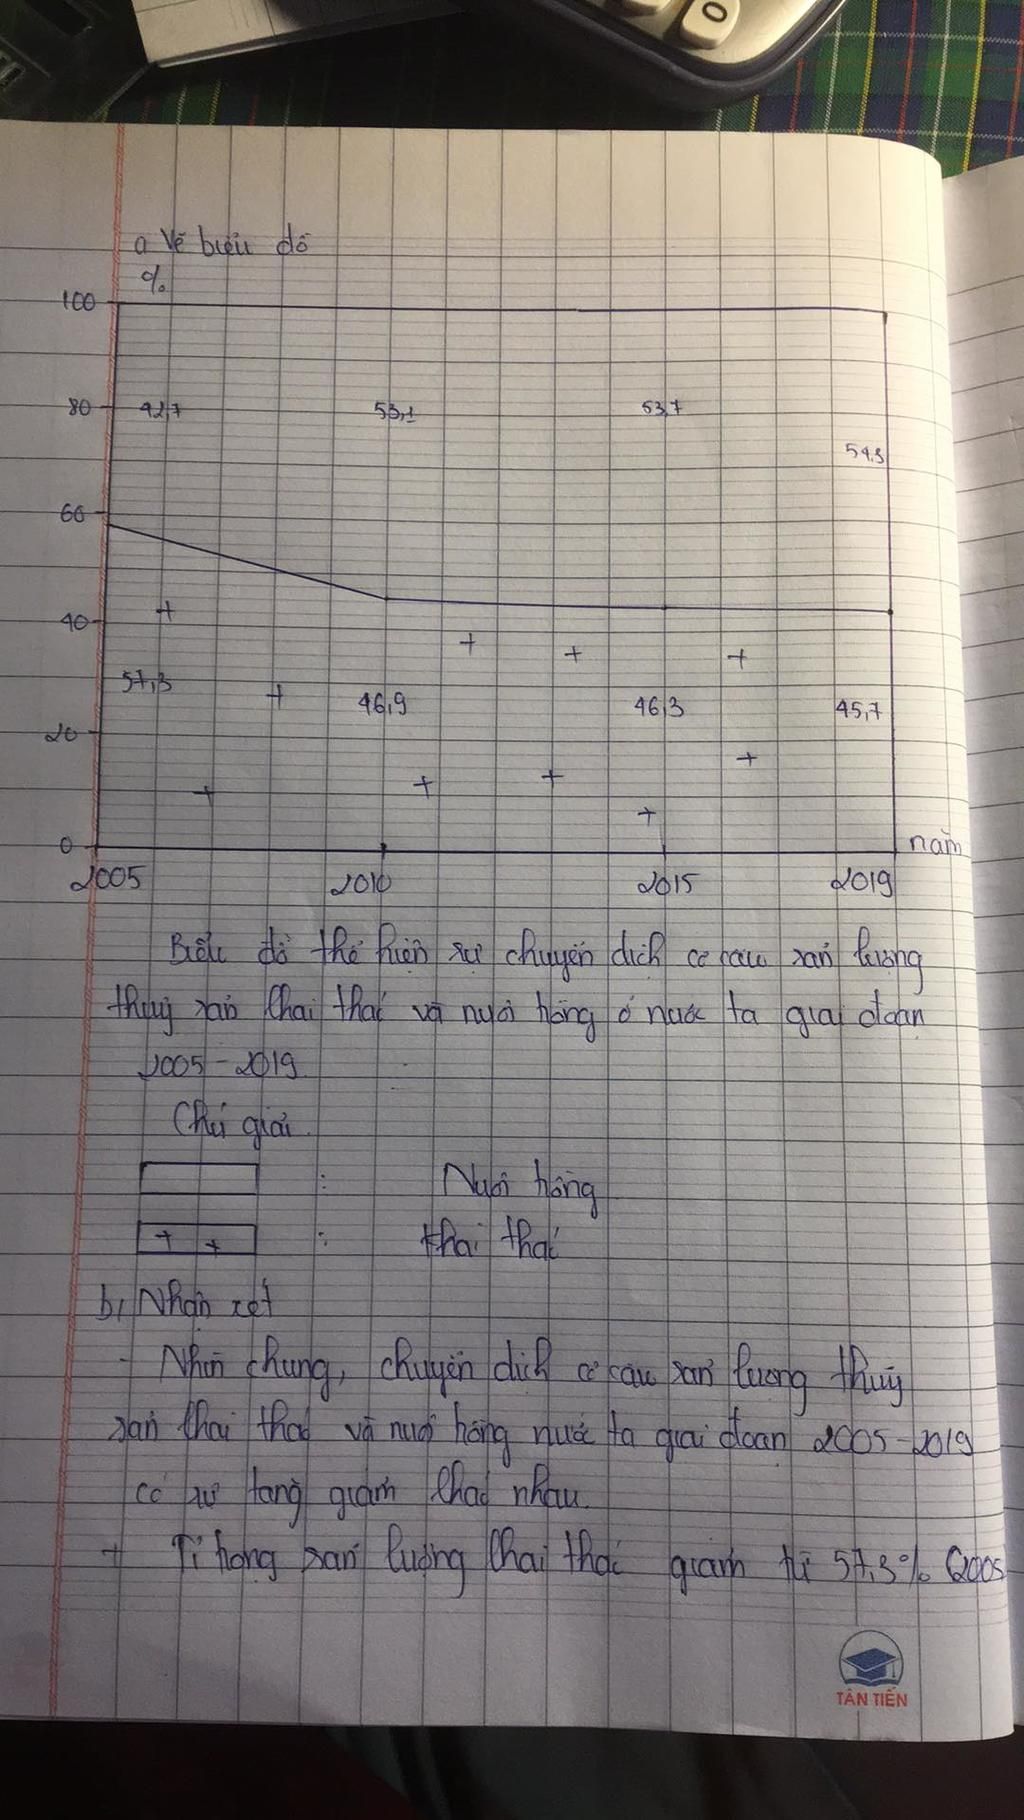 0
a Vẽ biểu đồ
%
100
80 42,7 53,1 53,7
54,3
60
40
57,3 46,9 46,3 45,7
20
0 năm
2005 2010 2015 2019
Biểu đồ thể hiện sự chuyển dịch cơ cấu sản lượng
thuỷ sản khai thác và nuôi trồng ở nước ta giai đoạn
2005-2019
Chú giải
: Nuôi trồng
++ : khai thác
b, Nhận xét
- Nhìn chung, chuyển dịch cơ cấu sản lượng thuỷ
sản khai thác và nuôi trồng nước ta giai đoạn 2005-2019
có sự tăng giảm khác nhau.
+ Tỉ trọng sản lượng khai thác giảm từ 57,3% (2005
TÂN TIẾN